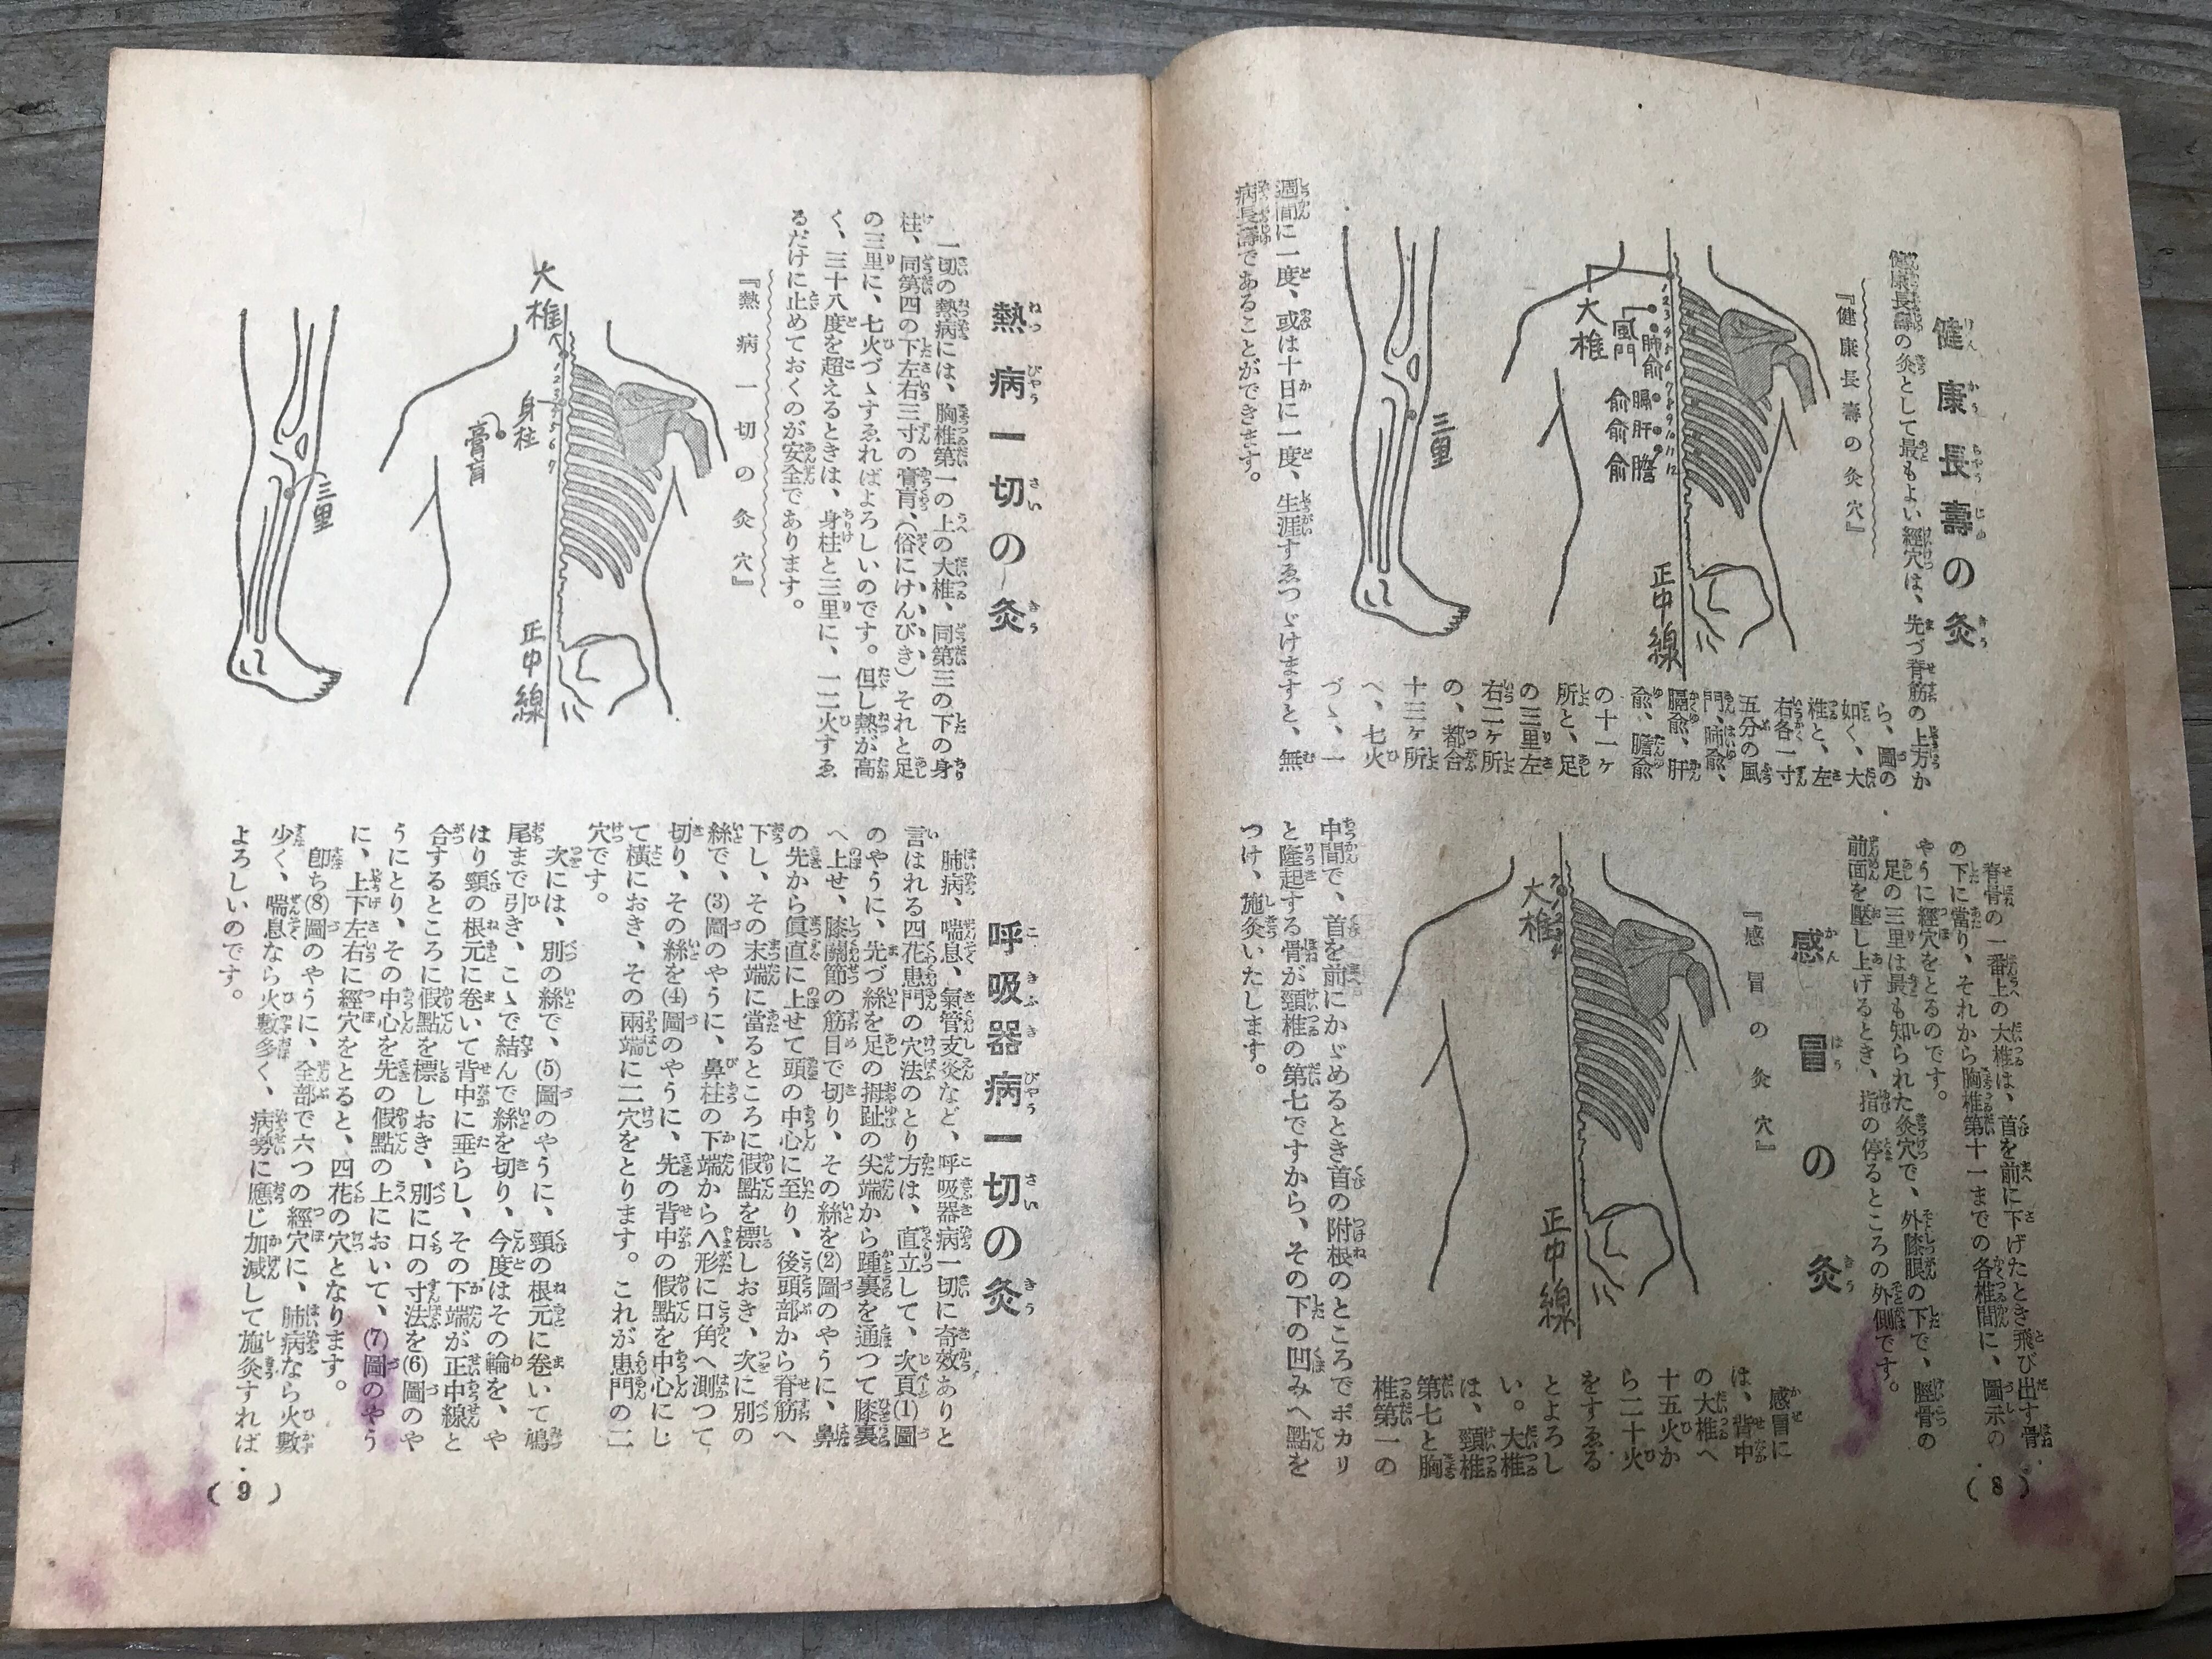 健康長壽の灸
『健康長壽の灸穴』
健康長壽の灸として最もよい經穴は、先づ脊筋の上方か
ら、圖の
如く、大
椎と、左
右各一寸
五分の風
門、肺俞、
膈俞、肝
俞、膽俞
の十一ヶ
所と、足
の三里左
右二ヶ所
の、都合
十三ヶ所
へ、七火
づゝ、一
週間に一度、或は十日に一度、生涯すゑつゞけますと、無
病長壽であることができます。
大椎
風門
肺俞
膈俞
肝俞
膽俞
1
2
3
4
5
6
7
8
9
10
11
12
正中線
三里
脊骨の一番上の大椎は、首を前に下げたとき飛び出す骨
の下に當り、それから胸椎第十一までの各椎間に、圖示の
やうに經穴をとるのです。
足の三里は最も知られた灸穴で、外膝眼の下で、脛骨の
前面を壓し上げるとき、指の停るところの外側です。
感冒の灸
『感冒の灸穴』
感冒に
は、背中
の大椎へ
十五火か
ら二十火
をすゑる
とよろし
い。大椎
は、頸椎
第七と胸
椎第一の
中間で、首を前にかゞめるとき首の附根のところでポカリ
と隆起する骨が頸椎の第七ですから、その下の凹みへ點を
つけ、施灸いたします。
大椎
正中線
(8)
熱病一切の灸
一切の熱病には、胸椎第一の上の大椎、同第三の下の身
柱、同第四の下左右三寸の膏肓、(俗にけんびき)それと足
の三里に、七火づゝすゑればよろしいのです。但し熱が高
く、三十八度を超えるときは、身柱と三里に、一二火すゑ
るだけに止めておくのが安全であります。
『熱病一切の灸穴』
大椎
身柱
膏肓
1
2
3
4
5
6
7
正中線
三里
呼吸器病一切の灸
肺病、喘息、氣管支炎など、呼吸器病一切に奇效ありと
言はれる四花患門の穴法のとり方は、直立して、次頁(1)圖
のやうに、先づ絲を足の拇趾の尖端から踵裏を通つて膝裏
へ上せ、膝關節の筋目で切り、その絲を(2)圖のやうに、鼻
の先から眞直に上せて頭の中心に至り、後頭部から脊筋へ
下し、その末端に當るところに假點を標しおき、次に別の
絲で、(3)圖のやうに、鼻柱の下端からへ形に口角へ測つて
切り、その絲を(4)圖のやうに、先の背中の假點を中心にし
て橫におき、その兩端に二穴をとります。これが患門の二
穴です。
次には、別の絲で、(5)圖のやうに、頸の根元に卷いて鳩
尾まで引き、こゝで結んで絲を切り、今度はその輪を、や
はり頸の根元に卷いて背中に垂らし、その下端が正中線と
合するところに假點を標しおき、別に口の寸法を(6)圖のや
うにとり、その中心を先の假點の上において、(7)圖のやう
に、上下左右に經穴をとると、四花の穴となります。
卽ち(8)圖のやうに、全部で六つの經穴に、肺病なら火數
少く、喘息なら火數多く、病勢に應じ加減して施灸すれば
よろしいのです。
(9)